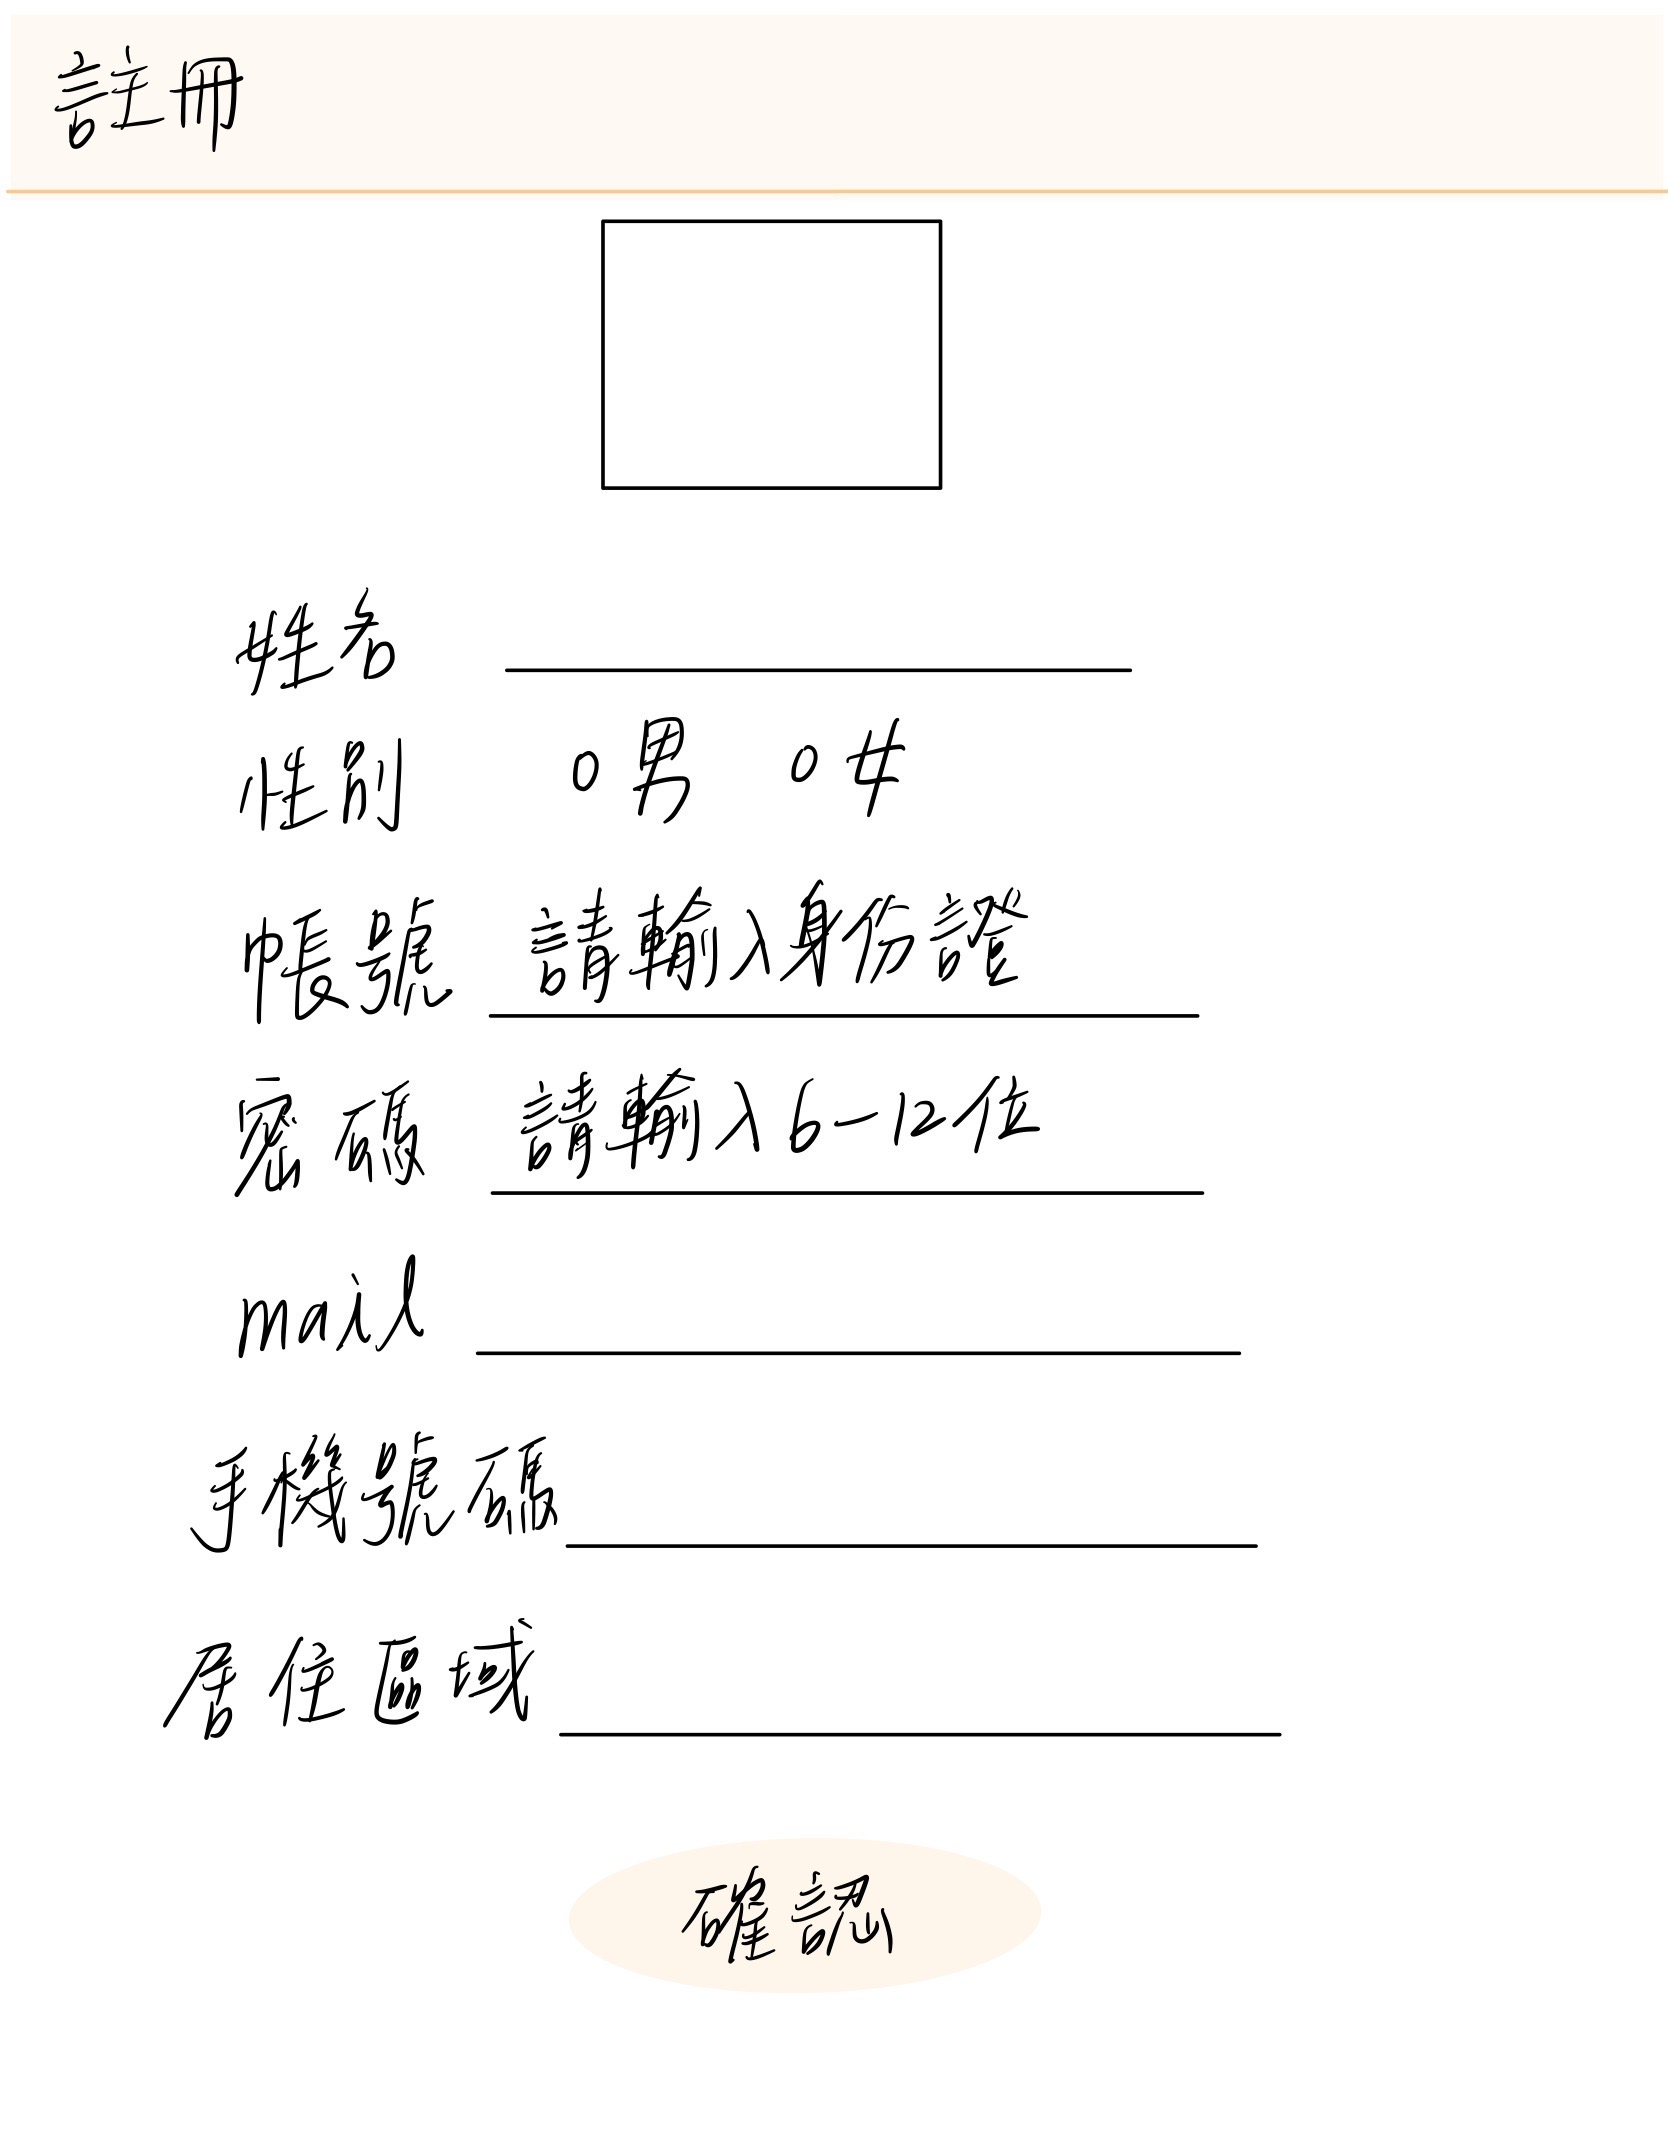 註冊
姓名
性別 O男 O女
帳號 請輸入身份證
密碼 請輸入6-12位
mail
手機號碼
居住區域
確認